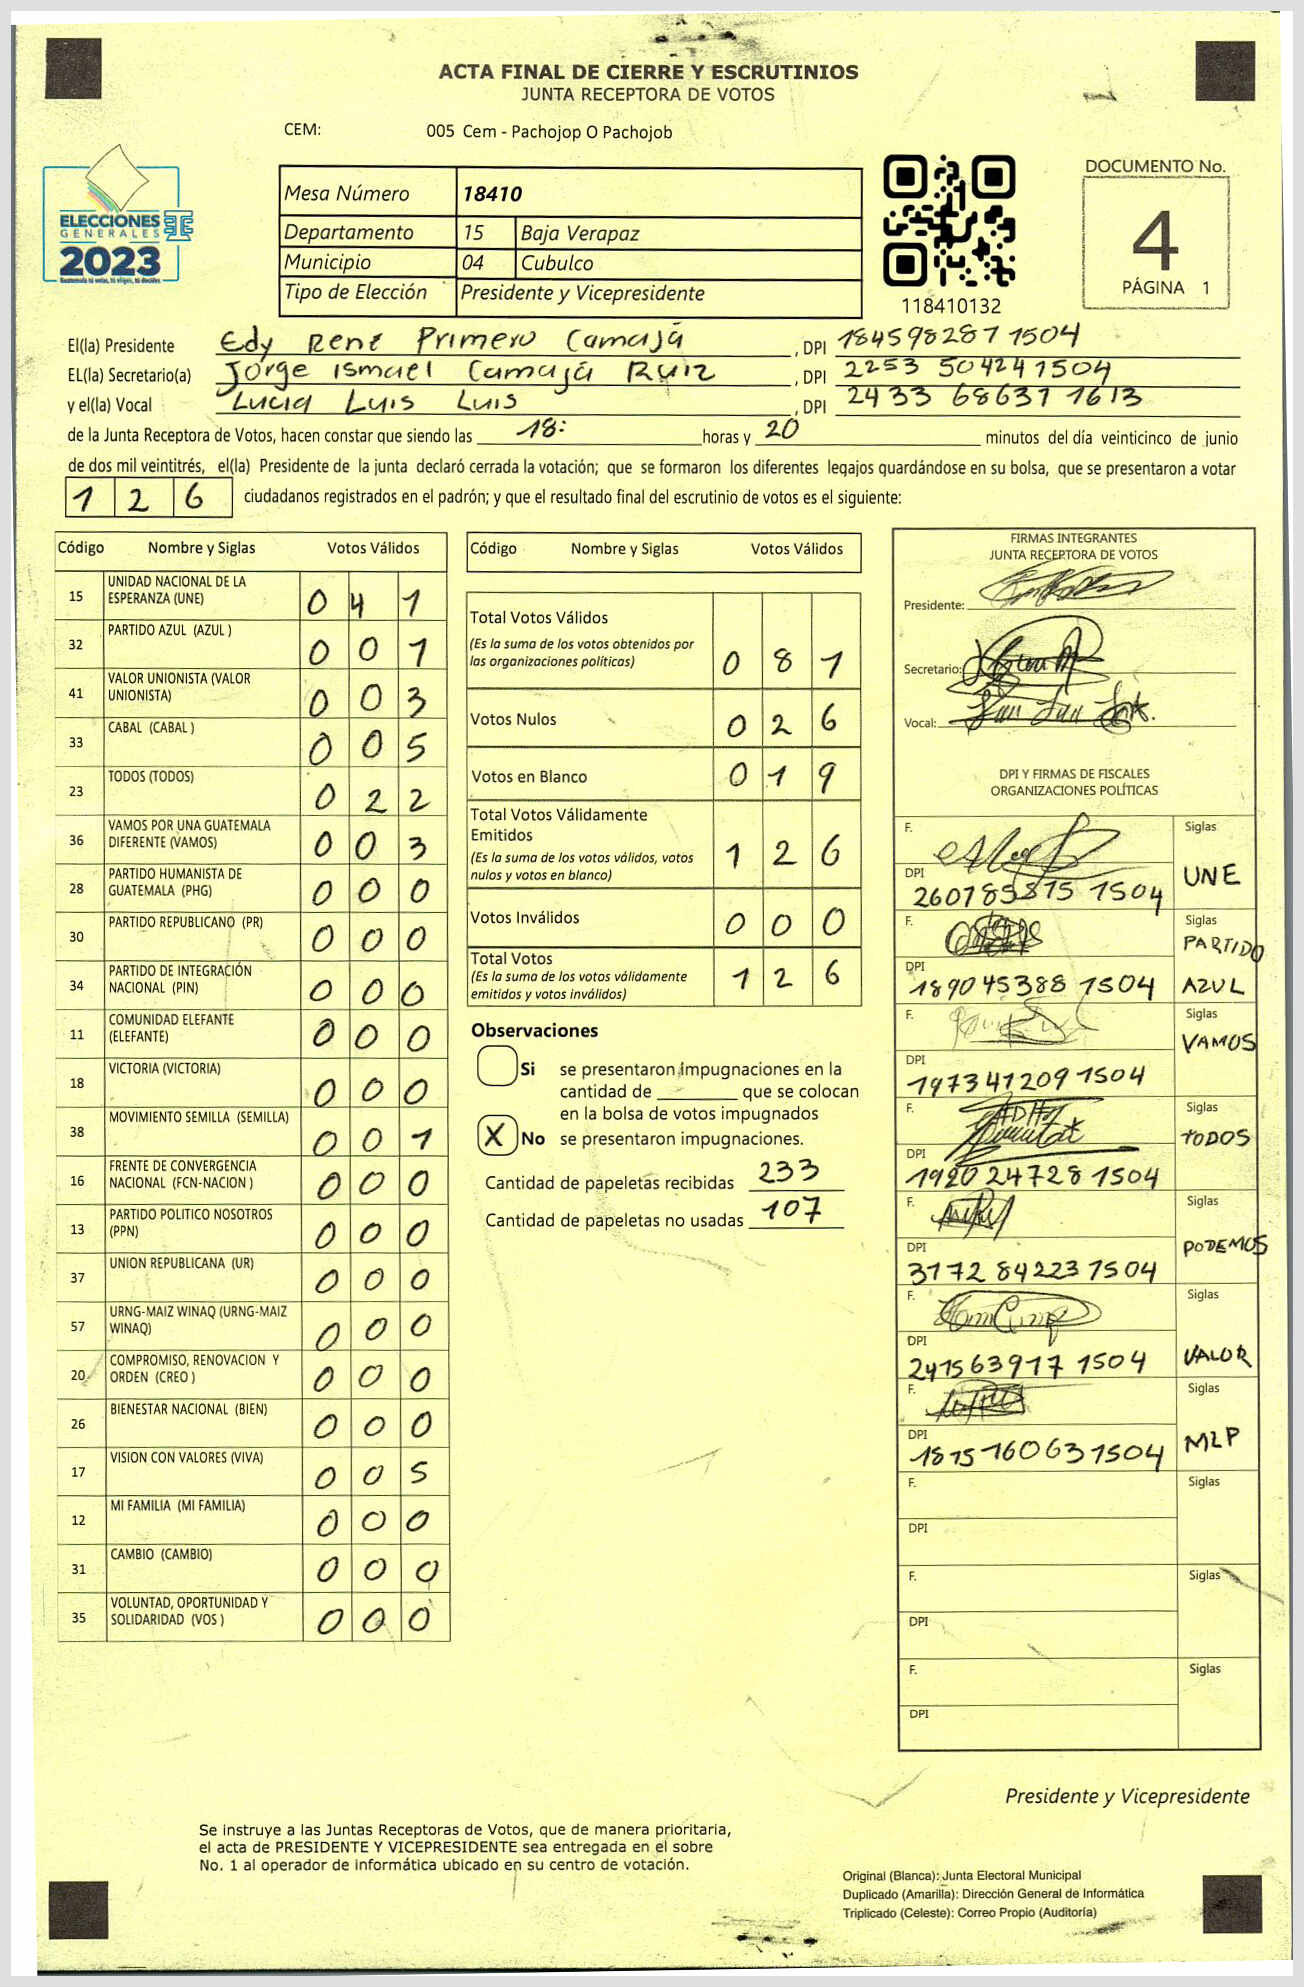 ACTA FINAL DE CIERRE Y ESCRUTINIOS
JUNTA RECEPTORA DE VOTOS
CEM: 005 Cem - Pachojop O Pachojob
ELECCIONES
GENERALES
2023
Mesa Número 18410
Departamento 15 Baja Verapaz
Municipio 04 Cubulco
Tipo de Elección Presidente y Vicepresidente
118410132
DOCUMENTO No.
4
PÁGINA 1
El(la) Presidente Edy René Primero Camajá , DPI 184598287 1504
EL(la) Secretario(a) Jorge Ismael Camajá Ruiz , DPI 2253 50424 1504
y el(la) Vocal Lucia Luis Luis , DPI 2433 68637 1613
de la Junta Receptora de Votos, hacen constar que siendo las 18: horas y 20 minutos del día veinticinco de junio
de dos mil veintitrés, el(la) Presidente de la junta declaró cerrada la votación; que se formaron los diferentes legajos guardándose en su bolsa, que se presentaron a votar
1 2 6 ciudadanos registrados en el padrón; y que el resultado final del escrutinio de votos es el siguiente:
Código Nombre y Siglas Votos Válidos
15 UNIDAD NACIONAL DE LA ESPERANZA (UNE) 0 4 1
32 PARTIDO AZUL (AZUL ) 0 0 1
41 VALOR UNIONISTA (VALOR UNIONISTA) 0 0 3
33 CABAL (CABAL ) 0 0 5
23 TODOS (TODOS) 0 2 2
36 VAMOS POR UNA GUATEMALA DIFERENTE (VAMOS) 0 0 3
28 PARTIDO HUMANISTA DE GUATEMALA (PHG) 0 0 0
30 PARTIDO REPUBLICANO (PR) 0 0 0
34 PARTIDO DE INTEGRACIÓN NACIONAL (PIN) 0 0 0
11 COMUNIDAD ELEFANTE (ELEFANTE) 0 0 0
18 VICTORIA (VICTORIA) 0 0 0
38 MOVIMIENTO SEMILLA (SEMILLA) 0 0 1
16 FRENTE DE CONVERGENCIA NACIONAL (FCN-NACION ) 0 0 0
13 PARTIDO POLITICO NOSOTROS (PPN) 0 0 0
37 UNION REPUBLICANA (UR) 0 0 0
57 URNG-MAIZ WINAQ (URNG-MAIZ WINAQ) 0 0 0
20 COMPROMISO, RENOVACION Y ORDEN (CREO ) 0 0 0
26 BIENESTAR NACIONAL (BIEN) 0 0 0
17 VISION CON VALORES (VIVA) 0 0 5
12 MI FAMILIA (MI FAMILIA) 0 0 0
31 CAMBIO (CAMBIO) 0 0 0
35 VOLUNTAD, OPORTUNIDAD Y SOLIDARIDAD (VOS ) 0 0 0
Código Nombre y Siglas Votos Válidos
Total Votos Válidos
(Es la suma de los votos obtenidos por
las organizaciones políticas) 0 8 1
Votos Nulos 0 2 6
Votos en Blanco 0 1 9
Total Votos Válidamente
Emitidos
(Es la suma de los votos válidos, votos
nulos y votos en blanco) 1 2 6
Votos Inválidos 0 0 0
Total Votos
(Es la suma de los votos válidamente
emitidos y votos inválidos) 1 2 6
Observaciones
Si se presentaron impugnaciones en la
cantidad de ________ que se colocan
en la bolsa de votos impugnados
X No se presentaron impugnaciones.
Cantidad de papeletas recibidas 233
Cantidad de papeletas no usadas 107
FIRMAS INTEGRANTES
JUNTA RECEPTORA DE VOTOS
Presidente:
Secretario:
Vocal:
DPI Y FIRMAS DE FISCALES
ORGANIZACIONES POLÍTICAS
F. Siglas
DPI 260785815 1504 UNE
F. Siglas
DPI 189045388 1504 PARTIDO AZUL
F. Siglas
DPI 197341209 1504 VAMOS
F. Siglas
DPI 1920 24728 1504 TODOS
F. Siglas
DPI 3172 84223 1504 PODEMOS
F. Siglas
DPI 241563917 1504 VALOR
F. Siglas
DPI 1815 16063 1504 MLP
F. Siglas
DPI
F. Siglas
DPI
F. Siglas
DPI
Presidente y Vicepresidente
Se instruye a las Juntas Receptoras de Votos, que de manera prioritaria,
el acta de PRESIDENTE Y VICEPRESIDENTE sea entregada en el sobre
No. 1 al operador de informática ubicado en su centro de votación.
Original (Blanca): Junta Electoral Municipal
Duplicado (Amarilla): Dirección General de Informática
Triplicado (Celeste): Correo Propio (Auditoría)